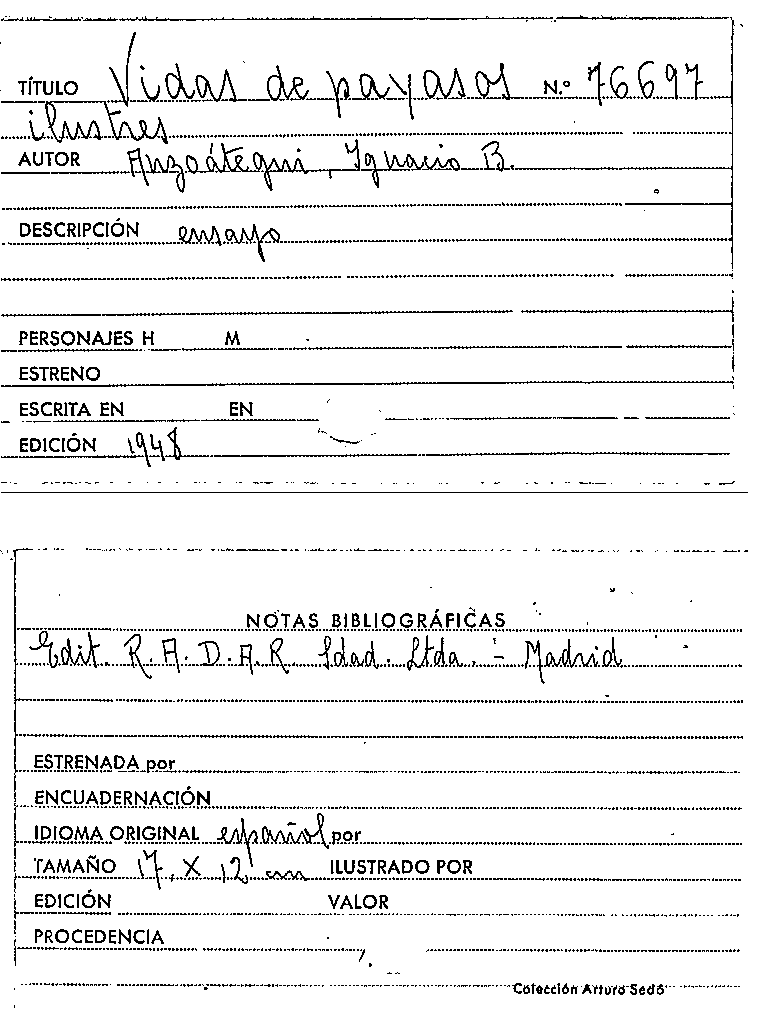 TÍTULO Vidas de payasos N.º 76697
ilustres
AUTOR Anzoátegui, Ignacio B.
DESCRIPCIÓN ensayo
PERSONAJES H M
ESTRENO
ESCRITA EN EN
EDICIÓN 1948
NOTAS BIBLIOGRÁFICAS
Edit. R.A.D.A.R. Sdad. Ltda. - Madrid
ESTRENADA por
ENCUADERNACIÓN
IDIOMA ORIGINAL español por
TAMAÑO 17 x 12 cm ILUSTRADO POR
EDICIÓN VALOR
PROCEDENCIA
Colección Arturo Sedó